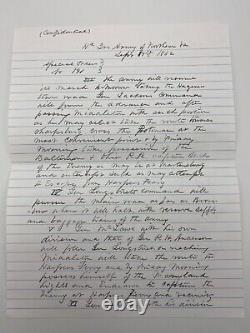 (Confidential)
Hd Qrs Army of Northern Va
Sept 9th 1862
Special Orders }
No 191 }
III The Army will resume
its march tomorrow taking the Hagers
town road. Gen Jacksons Command
will form the advance and after
passing Middletown with such portion
as he may select take the route
Sharpsburg cross the Potomac at the
most convenient point & by Friday
morning take possession of the
Baltimore & Ohio R.R. capture such
of the Enemy as may be at Martinsburg
and intercept such as may attempt
to escape from Harpers Ferry
IV Gen Longstreets Command will
pursue the main road as far as Boons
boro where it will halt with reserve supply
and baggage trains of the army
V Gen McLaws with his own
division and that of Gen R. H. Anderson
will follow Gen Longstreet on reaching
Middletown will take the route to
Harpers Ferry and by Friday morning
possess himself of the Maryland
heights and Endeavor to capture the
Enemy at Harpers Ferry and vicinity
VI Gen Walker with his division